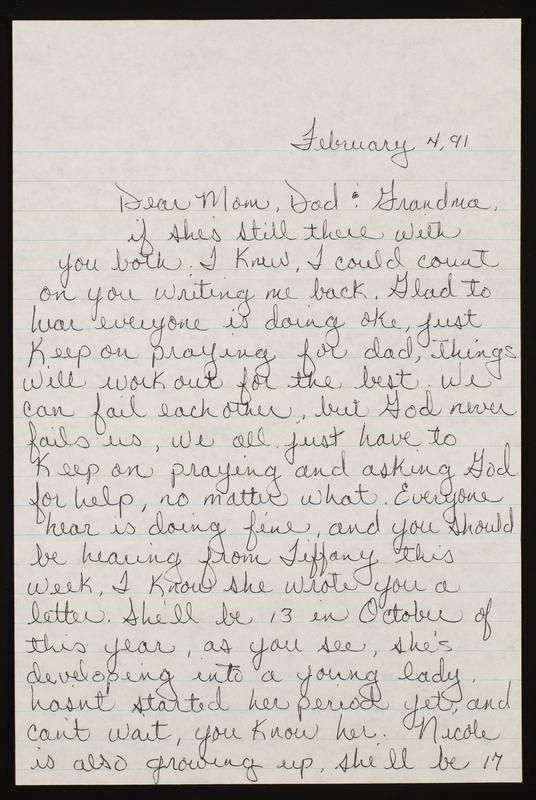 February 4, 91
Dear Mom, Dad & Grandma,
if she's still there with
you both. I Knew, I could count
on you writing me back. Glad to
hear everyone is doing oke, just
Keep on praying for dad, things
will work out for the best. We
can fail each other, but God never
fails us, we all just have to
Keep on praying and asking God
for help, no matter what. Everyone
hear is doing fine, and you should
be hearing from Tiffany this
week, I Know she wrote you a
letter. She'll be 13 in October of
this year, as you see, she's
developing into a young lady.
hasn't started her period yet, and
can't wait, you Know her. Nicole
is also growing up, she'll be 17